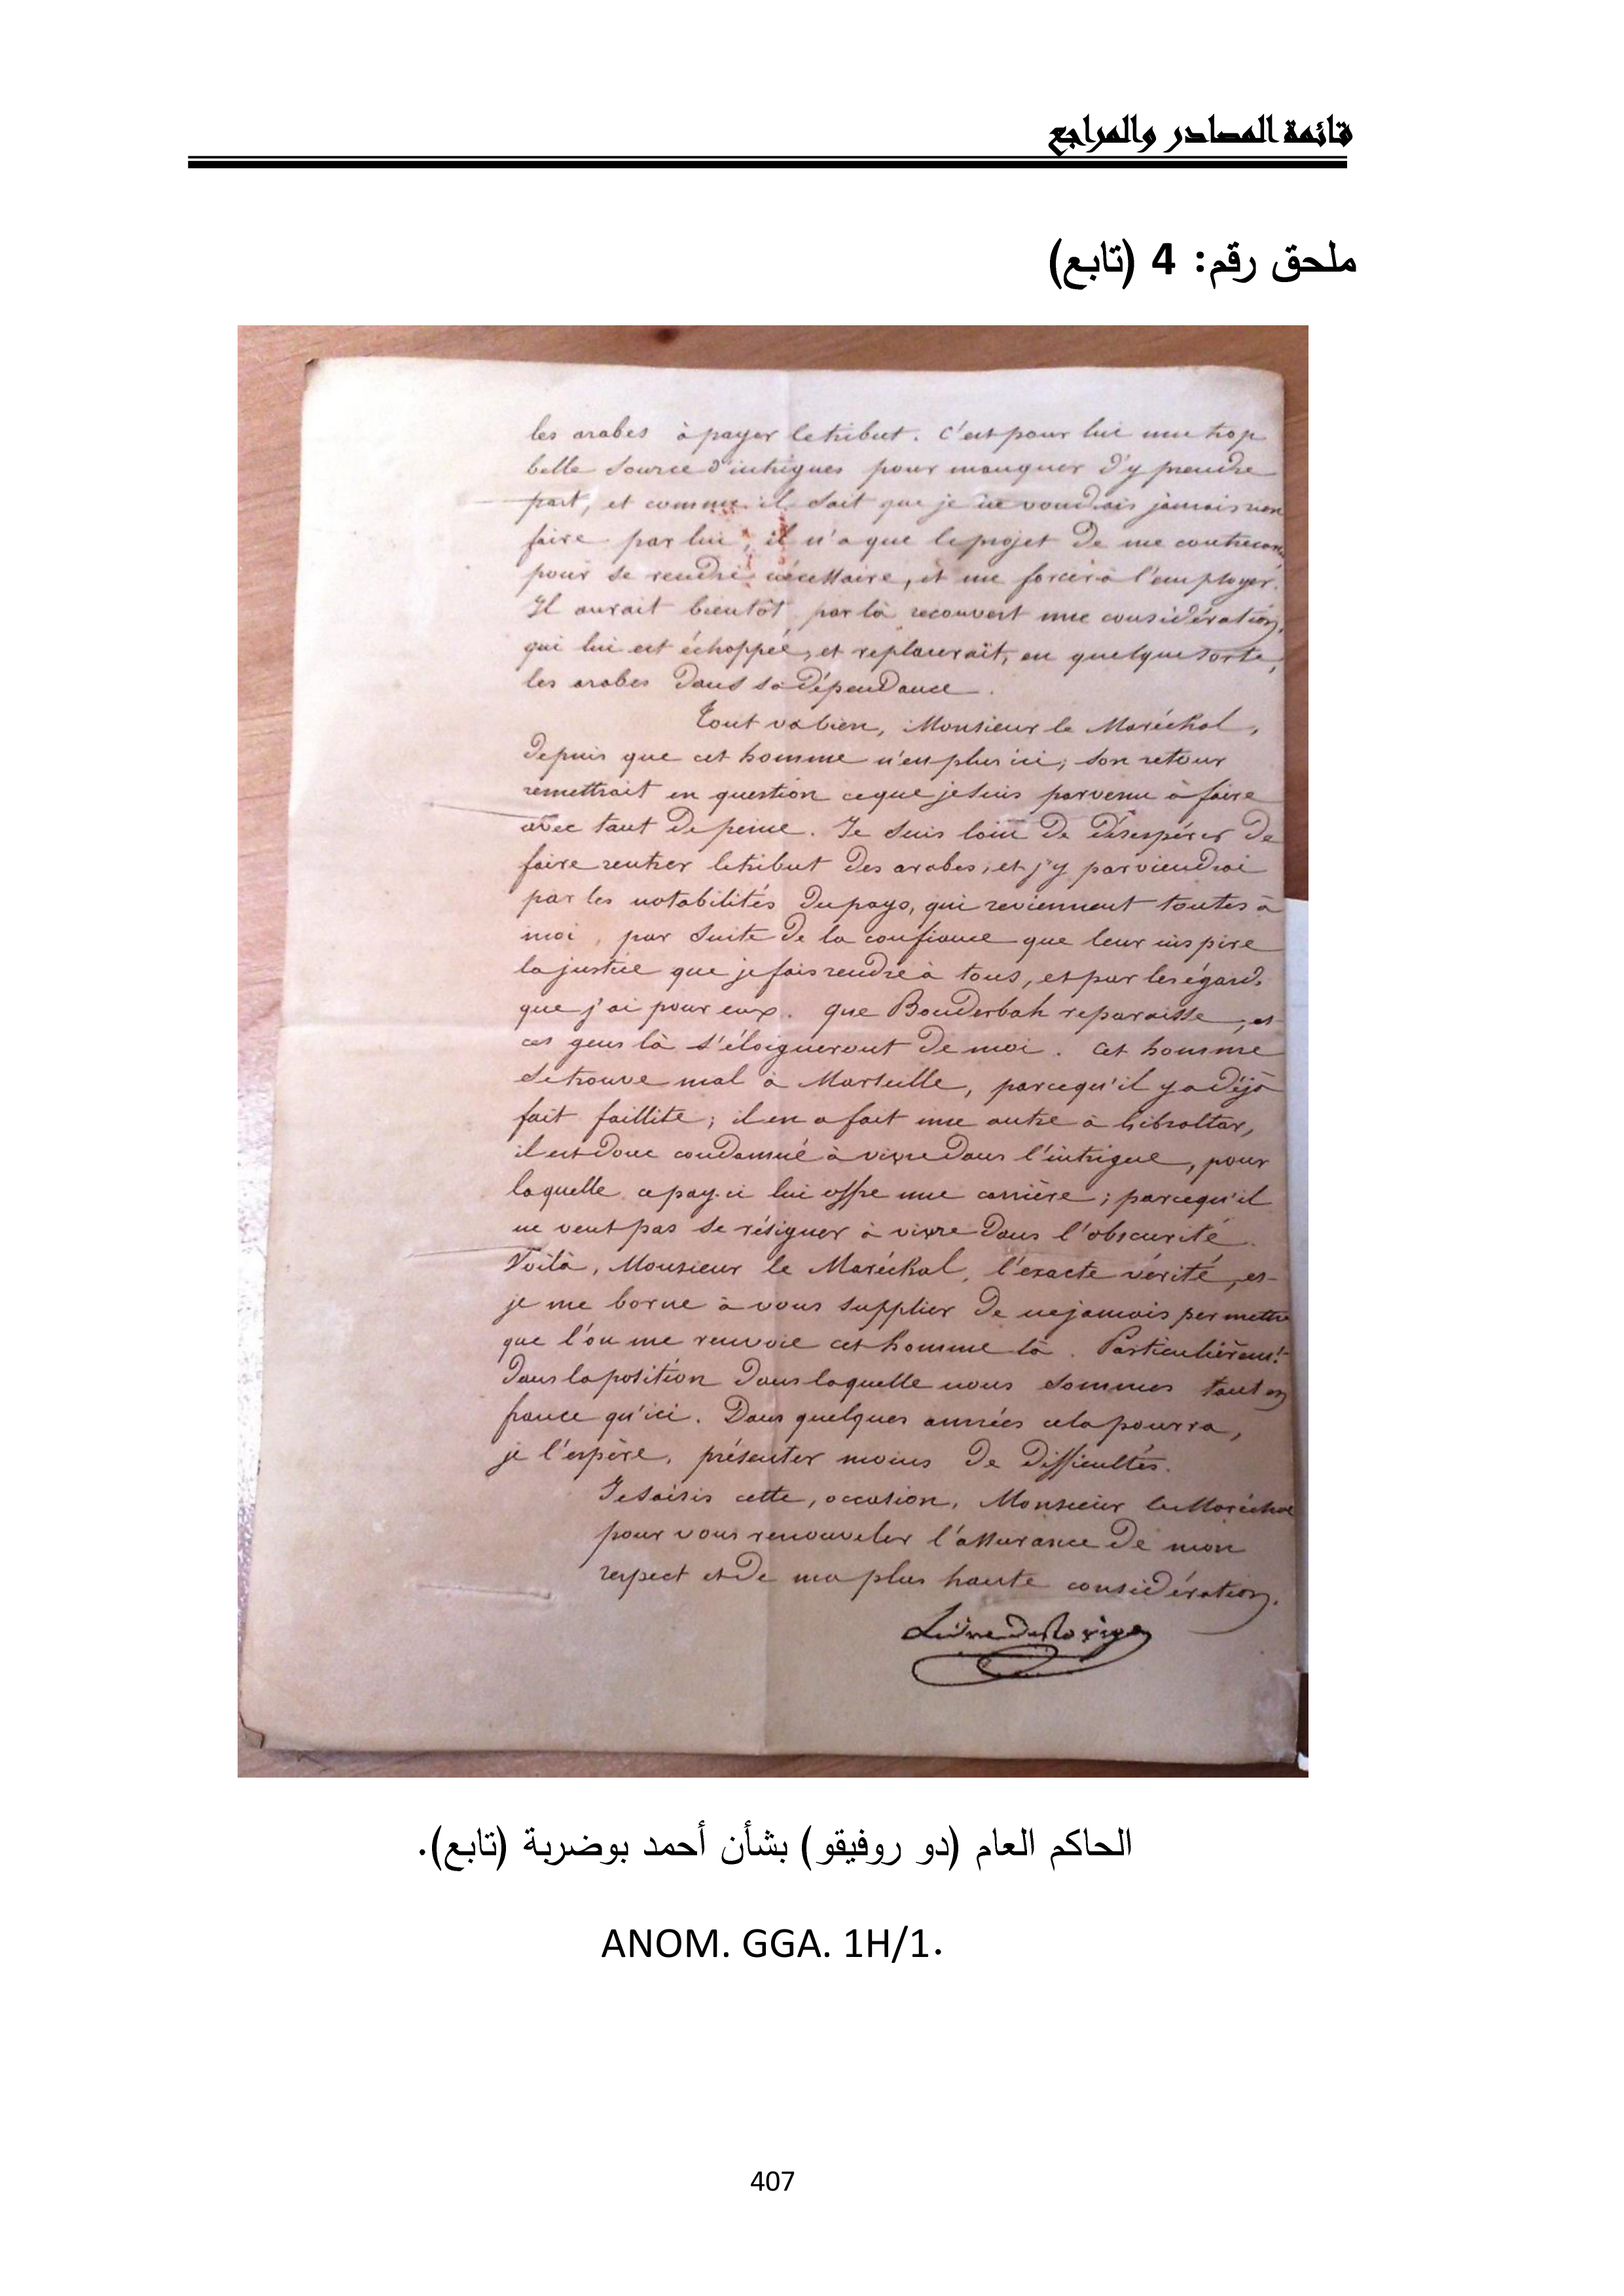 قائمة المصادر والمراجع
ملحق رقم: 4 (تابع)
les arabes à payer le tribut. C'est pour lui une trop
belle source d'intrigues pour manquer d'y prendre
part, et comme il sait que je ne voudrais jamais rien
faire par lui, il n'a que le projet de me contrecarrer
pour se rendre nécessaire, et me forcer à l'employer.
Il aurait bientôt par là recouvert une considération,
qui lui est échappée, et replacerait, en quelque sorte,
les arabes dans sa dépendance.
Tout va bien, Monsieur le Maréchal,
depuis que cet homme n'est plus ici; son retour
remettrait en question ce que je suis parvenu à faire
avec tant de peine. Je suis loin de désespérer de
faire rentrer le tribut des arabes, et j'y parviendrai
par les notabilités du pays, qui reviennent toutes à
moi, par suite de la confiance que leur inspire
la justice que je fais rendre à tous, et par les égards
que j'ai pour eux. que Bouderbah reparaisse, et
ces gens là s'éloigneront de moi. Cet homme
se trouve mal à Marseille, parcequ'il y a déjà
fait faillite; il en a fait une autre à Gibraltar,
il est donc condamné à vivre dans l'intrigue, pour
laquelle ce pays-ci lui offre une carrière; parcequ'il
ne veut pas se résigner à vivre dans l'obscurité.
Voilà, Monsieur le Maréchal, l'exacte vérité, et
je me borne à vous supplier de ne jamais permettre
que l'on me renvoie cet homme là. Particulièremt
dans la position dans laquelle nous sommes tant en
france qu'ici. Dans quelques années cela pourra,
je l'espère, présenter moins de difficultés.
Je saisis cette, occasion, Monsieur le Maréchal
pour vous renouveler l'assurance de mon
respect et de ma plus haute considération.
الحاكم العام (دو روفيقو) بشأن أحمد بوضربة (تابع).
ANOM. GGA. 1H/1.
407